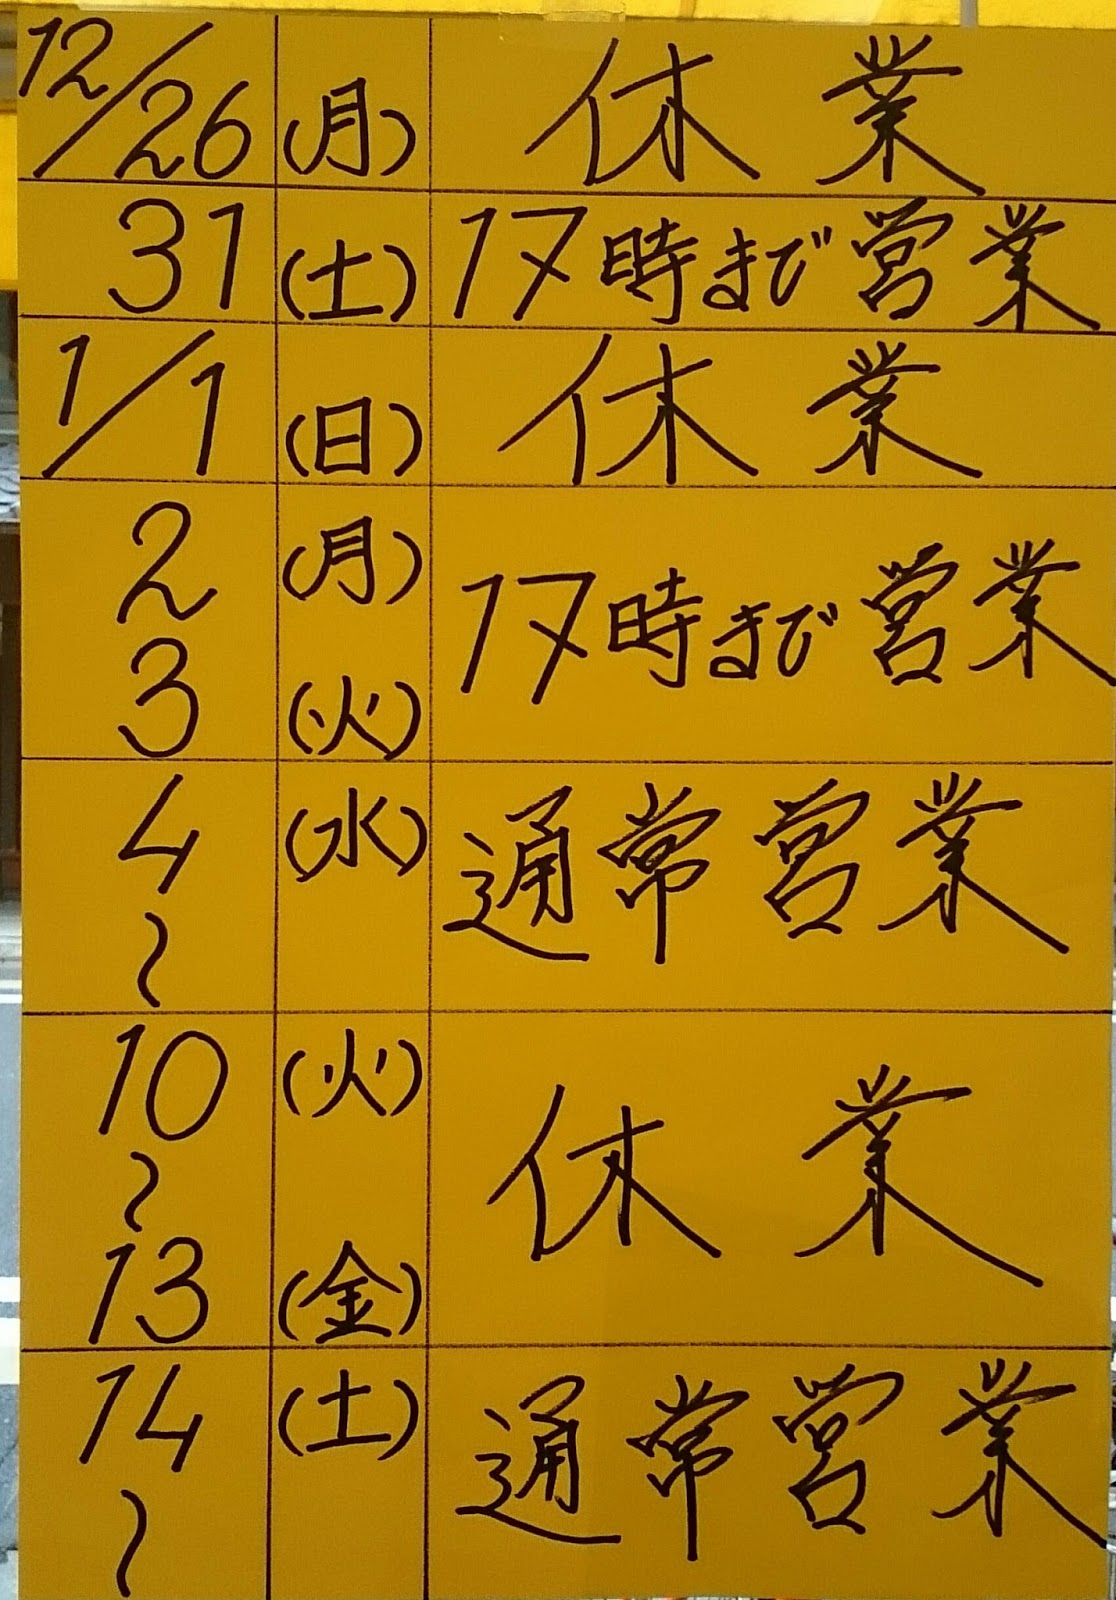 12/26 (月) 休業
31 (土) 17時まで営業
1/1 (日) 休業
2 (月)
17時まで営業
3 (火)
4 (水) 通常営業
〜
10 (火)
〜 休業
13 (金)
14 (土) 通常営業
〜